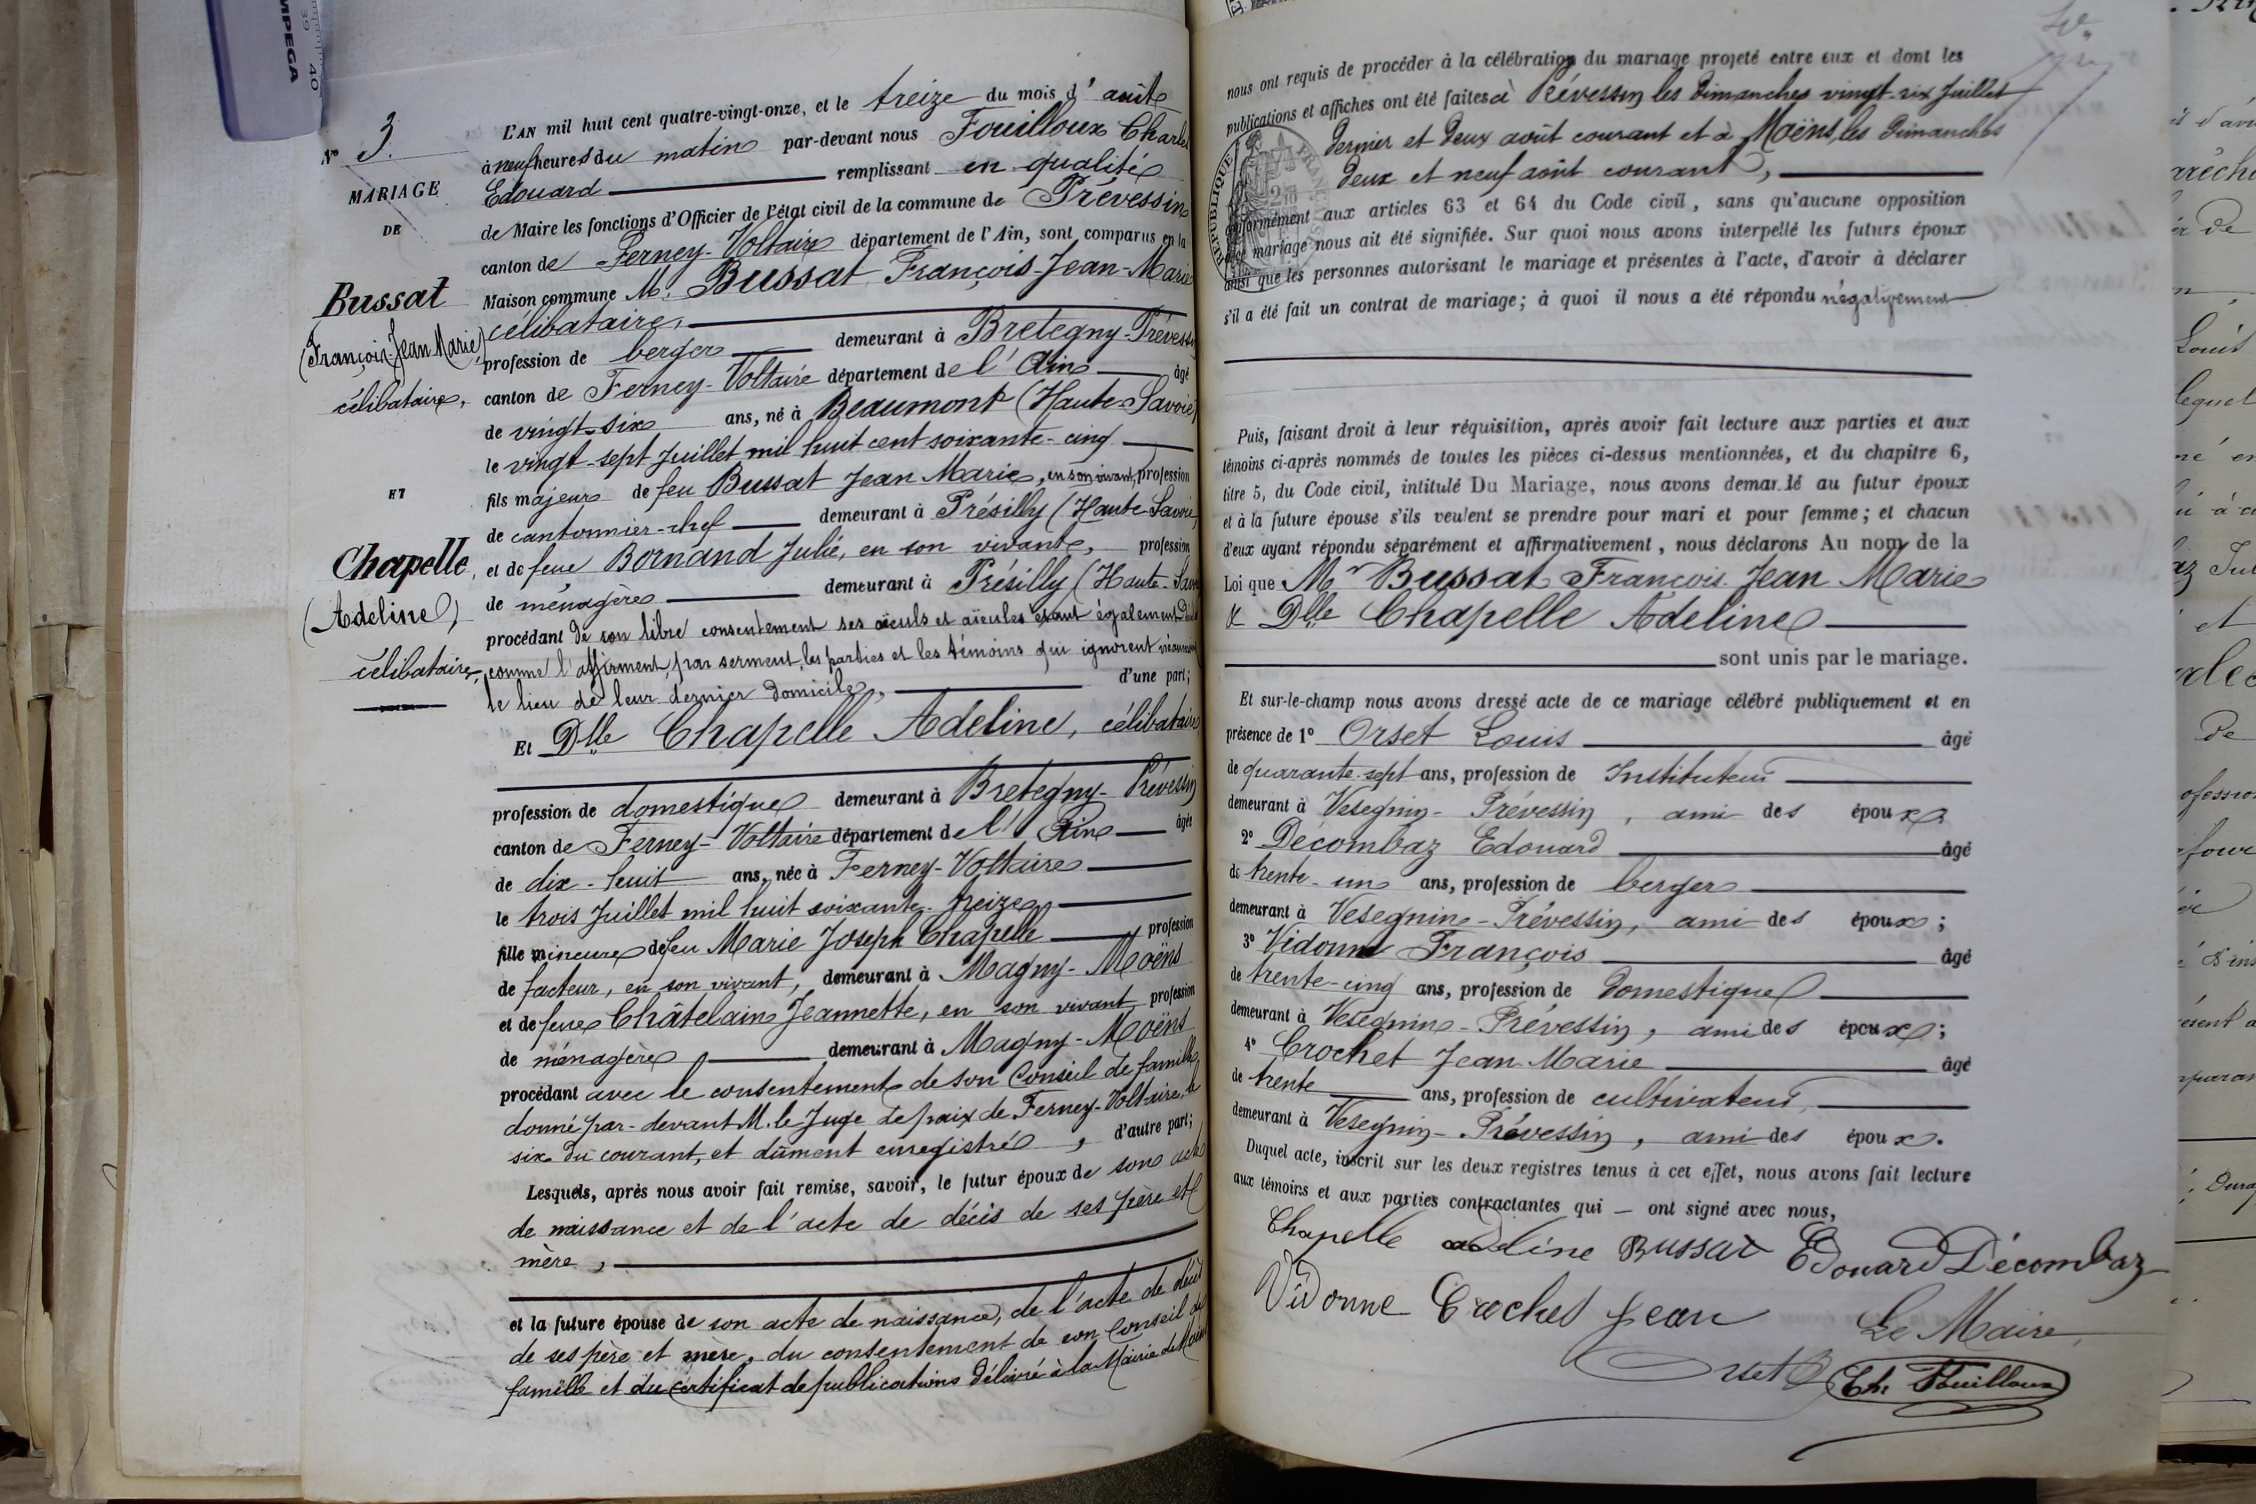 MPEGA
39 40
Nº 3.
MARIAGE
DE
Bussat
(François-Jean Marie)
célibataire,
ET
Chapelle,
(Adeline)
célibataire,
L'AN mil huit cent quatre-vingt-onze, et le treize du mois d'août
à neuf heures du matin par-devant nous Fouilloux Charles
Edouard remplissant en qualité
de Maire les fonctions d'Officier de l'état civil de la commune de Prévessin
canton de Ferney-Voltaire département de l'Ain, sont comparus en la
Maison commune M. Bussat François-Jean-Marie
célibataire,
profession de berger demeurant à Bretegny-Prévessin
canton de Ferney-Voltaire département de l'Ain âgé
de vingt-six ans, né à Beaumont (Haute-Savoie)
le vingt-sept juillet mil huit cent soixante-cinq
fils majeur de feu Bussat Jean Marie, en son vivant, profession
de cantonnier-chef demeurant à Présilly (Haute-Savoie)
et de feue Bornand Julie, en son vivant, profession
de ménagère demeurant à Présilly (Haute-Savoie)
procédant de son libre consentement ses aïeuls et aïeules étant également
comme l'affirment, par serment, les parties et les témoins qui ignorent néanmoins
le lieu de leur dernier domicile, d'une part;
Et Dlle Chapelle Adeline, célibataire
profession de domestique demeurant à Bretegny-Prévessin
canton de Ferney-Voltaire département de l'Ain âgée
de dix-huit ans, née à Ferney-Voltaire
le trois juillet mil huit soixante-treize
fille mineure de feu Marie Joseph Chapelle profession
de facteur, en son vivant, demeurant à Magny-Moëns
et de feue Châtelain Jeannette, en son vivant profession
de ménagère demeurant à Magny-Moëns
procédant avec le consentement de son Conseil de famille
donné par-devant M. le Juge de paix de Ferney-Voltaire, le
six du courant, et dûment enregistré, d'autre part;
Lesquels, après nous avoir fait remise, savoir, le futur époux de son acte
de naissance et de l'acte de décès de ses père et
mère,
et la future épouse de son acte de naissance, de l'acte de décès
de ses père et mère, du consentement de son Conseil de
famille et du certificat de publications délivré à la Mairie de Moëns
nous ont requis de procéder à la célébration du mariage projeté entre eux et dont les
publications et affiches ont été faites à Prévessin les Dimanches vingt-six juillet
dernier et deux août courant et à Moëns, les Dimanches
deux et neuf août courant,
conformément aux articles 63 et 64 du Code civil, sans qu'aucune opposition
à ce mariage nous ait été signifiée. Sur quoi nous avons interpellé les futurs époux
ainsi que les personnes autorisant le mariage et présentes à l'acte, d'avoir à déclarer
s'il a été fait un contrat de mariage; à quoi il nous a été répondu négativement
Puis, faisant droit à leur réquisition, après avoir fait lecture aux parties et aux
témoins ci-après nommés de toutes les pièces ci-dessus mentionnées, et du chapitre 6,
titre 5, du Code civil, intitulé Du Mariage, nous avons demandé au futur époux
et à la future épouse s'ils veulent se prendre pour mari et pour femme; et chacun
d'eux ayant répondu séparément et affirmativement, nous déclarons Au nom de la
Loi que Mr Bussat François Jean Marie
& Dlle Chapelle Adeline
sont unis par le mariage.
Et sur-le-champ nous avons dressé acte de ce mariage célébré publiquement et en
présence de 1º Orset Louis âgé
de quarante-sept ans, profession de Instituteur
demeurant à Vesegnin-Prévessin, ami des époux
2º Décombaz Edouard âgé
de trente-un ans, profession de berger
demeurant à Vesegnin-Prévessin, ami des époux;
3º Vidonne François âgé
de trente-cinq ans, profession de domestique
demeurant à Vesegnin-Prévessin, ami des époux;
4º Crochet Jean Marie âgé
de trente ans, profession de cultivateur,
demeurant à Vesegnin-Prévessin, ami des époux.
Duquel acte, inscrit sur les deux registres tenus à cet effet, nous avons fait lecture
aux témoins et aux parties contractantes qui — ont signé avec nous,
Chapelle adeline Bussat Edouard Décombaz
Vidonne Crochet Jean
Le Maire,
Orset Ch. Fouilloux